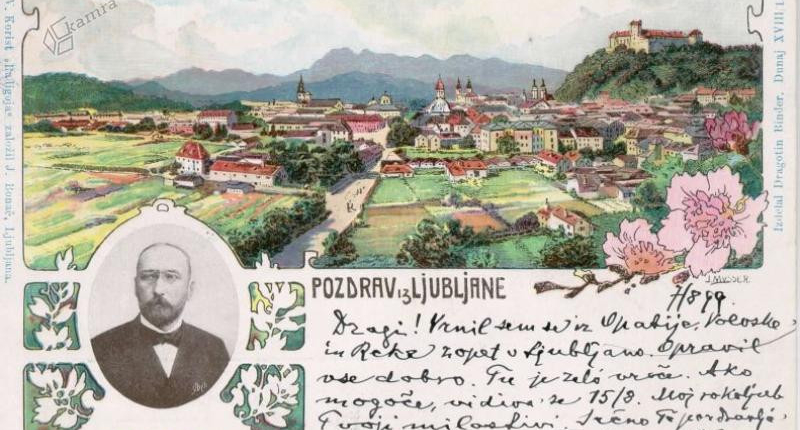 kamra
V. Korist „Radigoja“ založil J. Bonač, Ljubljana.
Izdelal Dragotin Binder, Dunaj XVIII
J. MUSSER
POZDRAV iz LJUBLJANE
7/8 99
Dragi! Vrnil sem se iz Opatije, Voloske
in Reke zopet v Ljubljano. Opravil
vse dobro. Tu je zelo vroče. Ako
mogoče, vidiva se 15/8. Moj rokoljub
Tvoji milostivi. Srčno Te pozdravlja